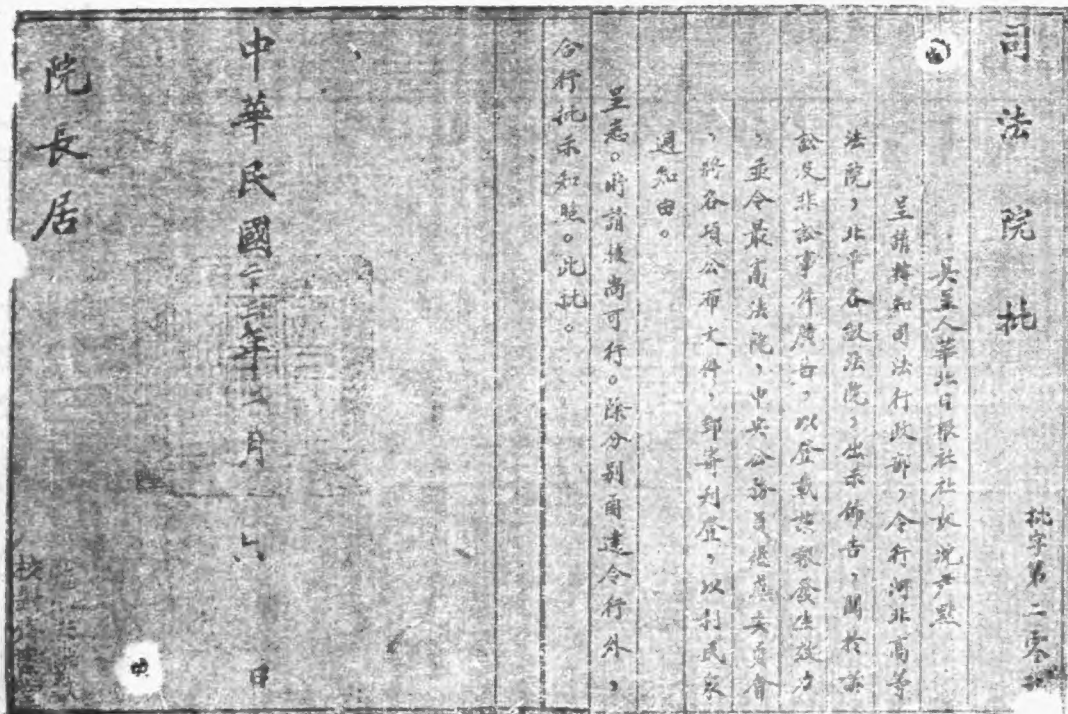 司法院批
批字第二零
具呈人華北日報社社長沈尹默
呈請轉知司法行政部，令行河北高等
法院，北平各級法院，出示佈告，關於訴
訟及非訟事件廣告，以登載該報發生效力
，並令最高法院，中央公務員懲戒委員會
，將各項公布文件，郵寄刊登，以利民衆
週知由。
呈悉。所請核尚可行。除分別函達令行外，
合行批示知照。此批。
中華民國二十三年三月六日
院長居